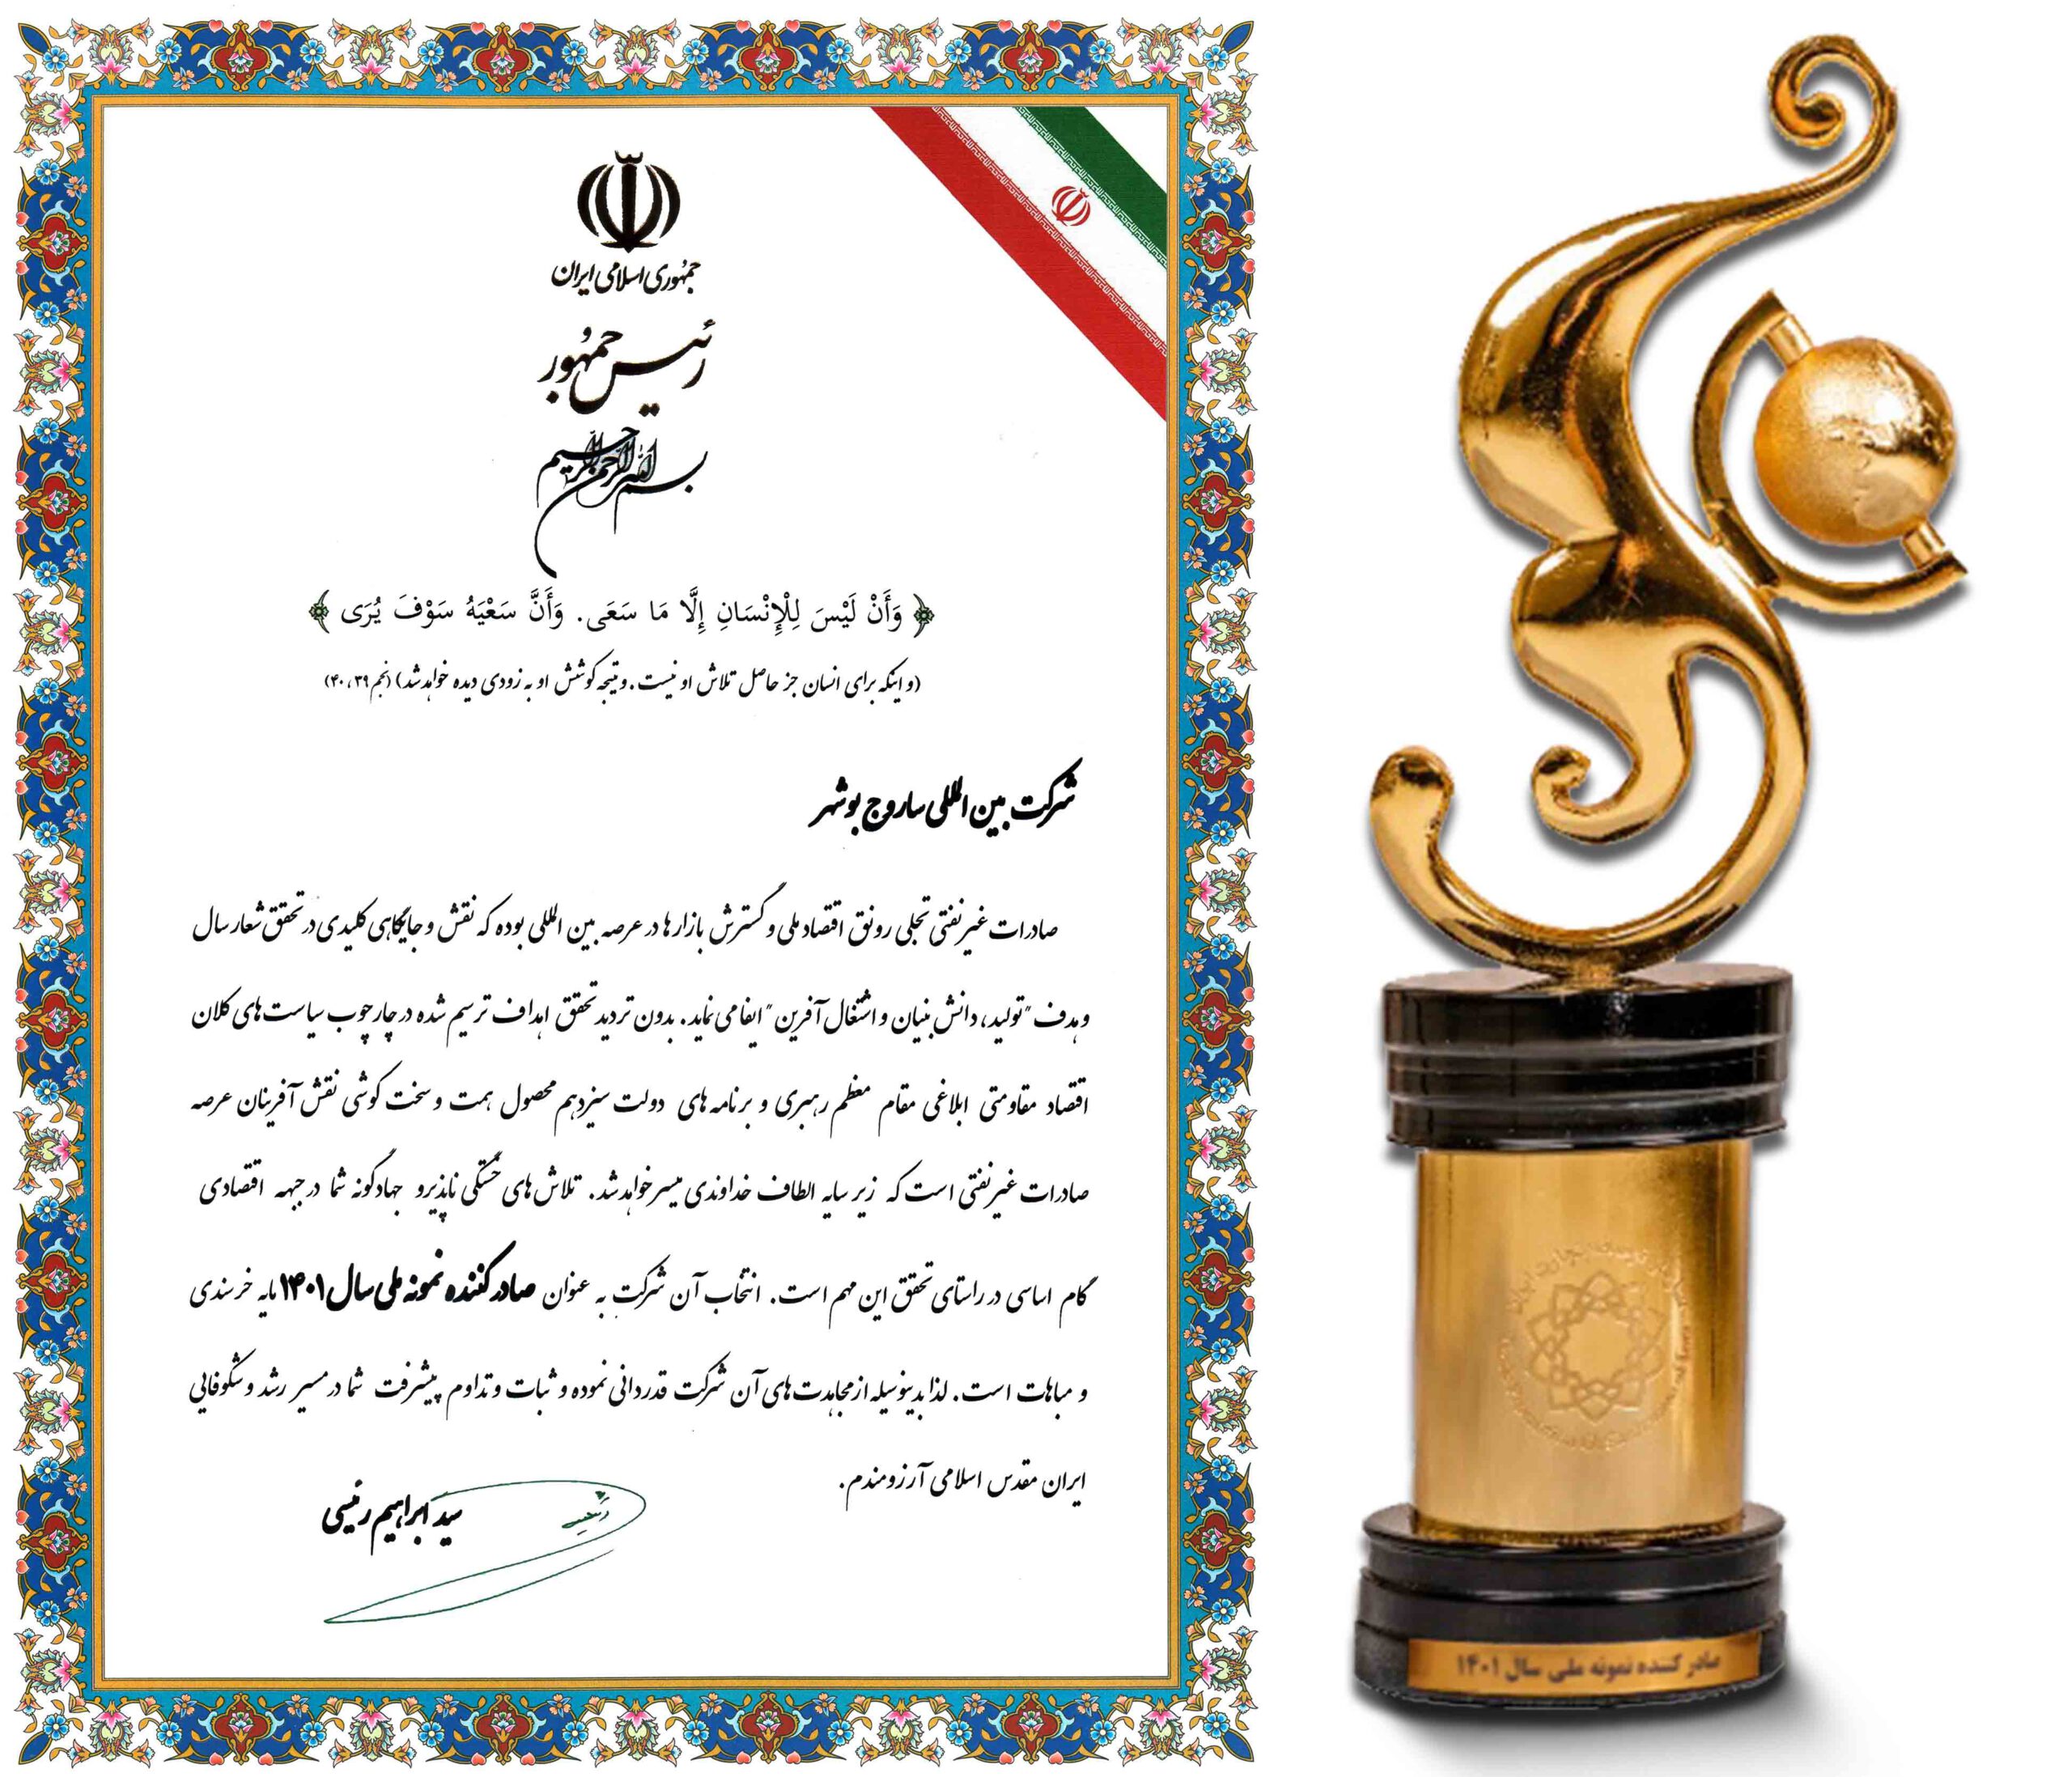 جمهوری اسلامی ایران
رئیس جمهور
بسم الله الرحمن الرحیم
﴿ وَأَنْ لَيْسَ لِلْإِنْسَانِ إِلَّا مَا سَعَى. وَأَنَّ سَعْيَهُ سَوْفَ يُرَى ﴾
(و اینکه برای انسان جز حاصل تلاش او نیست. و نتیجه کوشش او به زودی دیده خواهد شد) (نجم ۳۹، ۴۰)
شرکت بین المللی ساروج بوشهر
صادرات غیرنفتی تجلی رونق اقتصاد ملی و گسترش بازارها در عرصه بین المللی بوده که نقش و جایگاهی کلیدی در تحقق شعار سال
و هدف "تولید، دانش بنیان و اشتغال آفرین" ایفا می نماید. بدون تردید تحقق اهداف ترسیم شده در چارچوب سیاست های کلان
اقتصاد مقاومتی ابلاغی مقام معظم رهبری و برنامه های دولت سیزدهم محصول همت و سخت کوشی نقش آفرینان عرصه
صادرات غیرنفتی است که زیر سایه الطاف خداوندی میسر خواهد شد. تلاش های خستگی ناپذیر و جهادگونه شما در جبهه اقتصادی
گام اساسی در راستای تحقق این مهم است. انتخاب آن شرکت به عنوان صادرکننده نمونه ملی سال ۱۴۰۱ مایه خرسندی
و مباهات است. لذا بدینوسیله از مجاهدت های آن شرکت قدردانی نموده و ثبات و تداوم پیشرفت شما در مسیر رشد و شکوفایی
ایران مقدس اسلامی آرزومندم.
سید ابراهیم رئیسی
صادرکننده نمونه ملی سال ۱۴۰۱